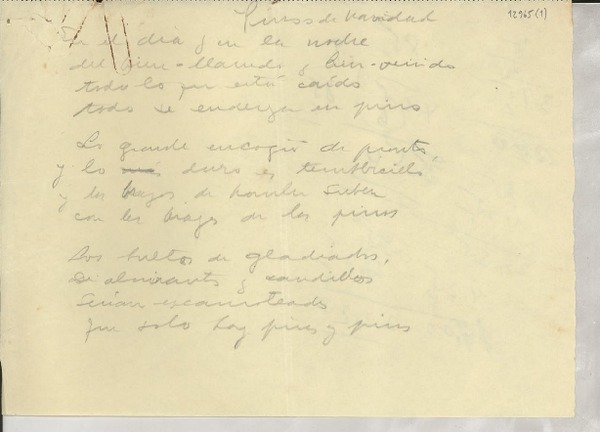 Pinos de Navidad
12965 (1)
En el día y en la noche
del bien-llamado y bien-venido
todo lo que está caído
todo se endereza en pino
Lo grande encogió de pronto,
y lo duro es
y los brazos de hombre suben
con los brazos de los pinos
Los bultos de gladiador,
de almirante y caudillos
serían escamoteados
que solo hay pinos y pinos